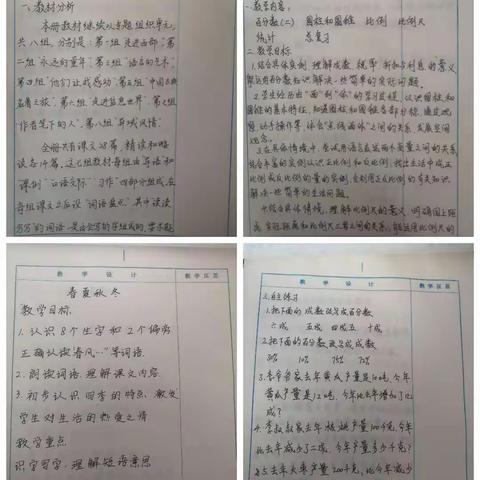 一、教材分析
本册教材继续以专题组织单元,
共八组。分别是:第一组"走进西部",第
二组"永远的童年",第三组"语言的艺术",
第四组"他们让我感动",第五组"中国古典
名著之旅",第六组"走进信息世界",第七组
"作家笔下的人",第八组"异域风情"。
全册共有课文28篇,精读和略
读各14篇。这七组教材每组由导语和
课例"口语交际""习作"四部分组成,在
每组课文之后设"词语盘点",其中读读
写写的词语,是由会写的字组成的,要求能
一、教学内容:
百分数(二) 圆柱和圆锥 比例 比例尺
统计 总复习
二、教学目标
1.结合具体实例,理解成数、税率、折扣与利息的意义
能运用百分数知识解决一些简单的实际问题。
2.学生经历由"面"到"体"的学习过程,认识圆柱和
圆锥的基本特征,知道圆柱和圆锥各部分名称,通过观
察、动手操作等,体会"点线面体"之间的关系,发展空间
观念。
3.在具体情境中,尝试用语言表述两个变量之间的关系,
结合丰富的实例认识正比例和反比例,找出生活中成正
比例或反比例的量的实例,会利用正反比例的有关知识
解决一些简单的生活问题。
4.结合具体情境,理解比例尺的意义,明确图上距
离、实际距离和比例尺三者之间的关系,能运用比例尺的
教 学 设 计
教学反思
春夏秋冬
教学目标:
1.认识8个生字和2个偏旁
正确认读"春风…"等词语.
2.朗读词语,理解课文内容.
3.初步认识四季的特点,激发
学生对生活的热爱之情.
教学重点
识字写字,理解短语意思
教 学 设 计
教学反思
三、自主练习
1.把下面的成数改写成百分数
六成 五成 四成五 十成
2.把下面的百分数改写成成数
30% 10% 75% 72%
3.李爷爷家去年黄瓜产量是10吨,今年
黄瓜产量是12吨,今年比去年增加了几
成?
4.李叔叔家去年核桃产量1000千克,今年
比去年减少了二成,今年产量多少千克?
5.去年大枣产量2000千克,比今年减少